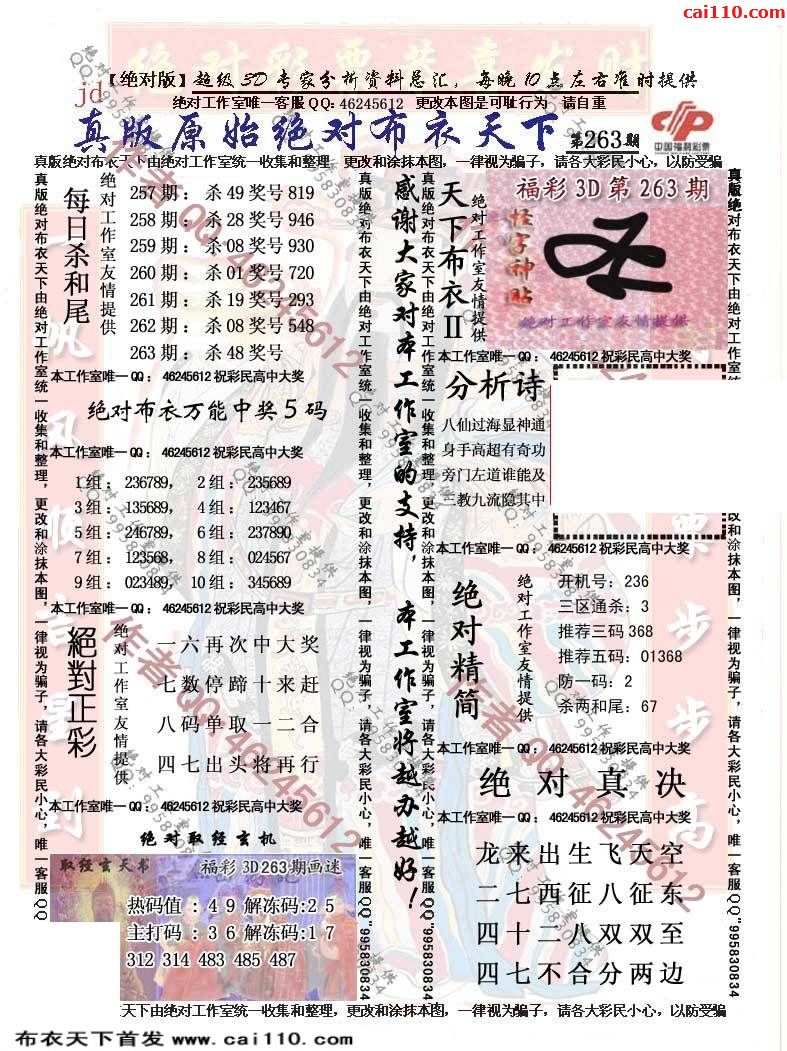 cai110.com
【绝对版】超级3D专家分析资料总汇，每晚10点左右准时提供
jd
绝对工作室唯一客服QQ: 46245612 更改本图是可耻行为 请自重
真版原始绝对布衣天下 第263期
中国福利彩票
真版绝对布衣天下由绝对工作室统一收集和整理，更改和涂抹本图，一律视为骗子，请各大彩民小心，以防受骗
每日杀和尾
绝对工作室友情提供
257期：杀49奖号819
258期：杀28奖号946
259期：杀08奖号930
260期：杀01奖号720
261期：杀19奖号293
262期：杀08奖号548
263期：杀48奖号
本工作室唯一QQ：46245612祝彩民高中大奖
绝对布衣万能中奖5码
本工作室唯一QQ：46245612祝彩民高中大奖
1组：236789， 2组：235689
3组：135689， 4组：123467
5组：246789， 6组：237890
7组：123568， 8组：024567
9组：023489， 10组：345689
本工作室唯一QQ：46245612祝彩民高中大奖
絕對正彩
绝对工作室友情提供
一六再次中大奖
七数停蹄十来赶
八码单取一二合
四七出头将再行
本工作室唯一QQ：46245612祝彩民高中大奖
绝对取经玄机
取经玄天书
福彩3D263期画迷
热码值：49解冻码:25
主打码：36解冻码:17
312 314 483 485 487
感谢大家对本工作室的支持，本工作室将越办越好！
真版绝对布衣天下由绝对工作室统一收集和整理，更改和涂抹本图，一律视为骗子，请各大彩民小心，唯一客服QQ
真版绝对布衣天下由绝对工作室统一收集和整理，更改和涂抹本图，一律视为骗子，请各大彩民小心，唯一客服QQ"995830834
真版绝对布衣天下由绝对工作室统一收集和整理，更改和涂抹本图，一律视为骗子，请各大彩民小心，唯一客服QQ"995830834
天下布衣II
绝对工作室友情提供
福彩3D第263期
怪字神贴
绝对工作室友情提供
本工作室唯一QQ：46245612祝彩民高中大奖
分析诗
八仙过海显神通
身手高超有奇功
旁门左道谁能及
三教九流隐其中
本工作室唯一QQ：46245612祝彩民高中大奖
绝对精简
绝对工作室友情提供
开机号：236
三区通杀：3
推荐三码368
推荐五码：01368
防一码：2
杀两和尾：67
本工作室唯一QQ：46245612祝彩民高中大奖
绝对真决
本工作室唯一QQ：46245612祝彩民高中大奖
龙来出生飞天空
二七四征八征东
四十二八双双至
四七不合分两边
真版绝对布衣天下由绝对工作室统一
改和涂抹本图，一律视为骗子，请各大彩民小心，唯一客服QQ"995830834
天下由绝对工作室统一收集和整理，更改和涂抹本图，一律视为骗子，请各大彩民小心，以防受骗
布衣天下首发 www.cai110.com